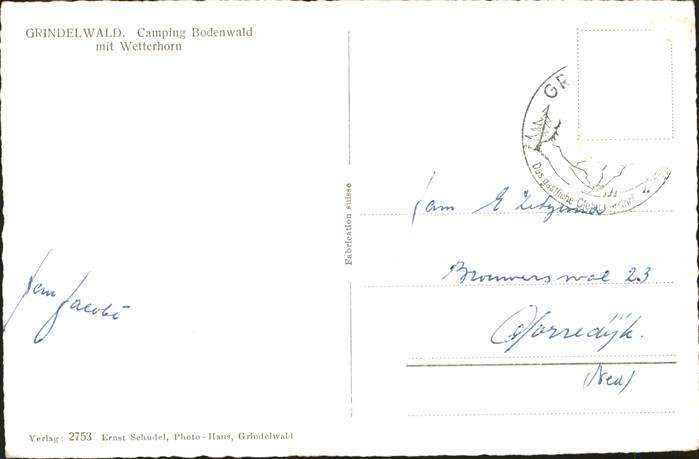 GRINDELWALD. Camping Bodenwald
mit Wetterhorn
GR
Das gastliche
Fabrication suisse
Fam E
Brouwerswal 23
Gorredijk.
(Ned)
Fam Jacobi
Verlag: 2753 Ernst Schudel, Photo-Haus, Grindelwald